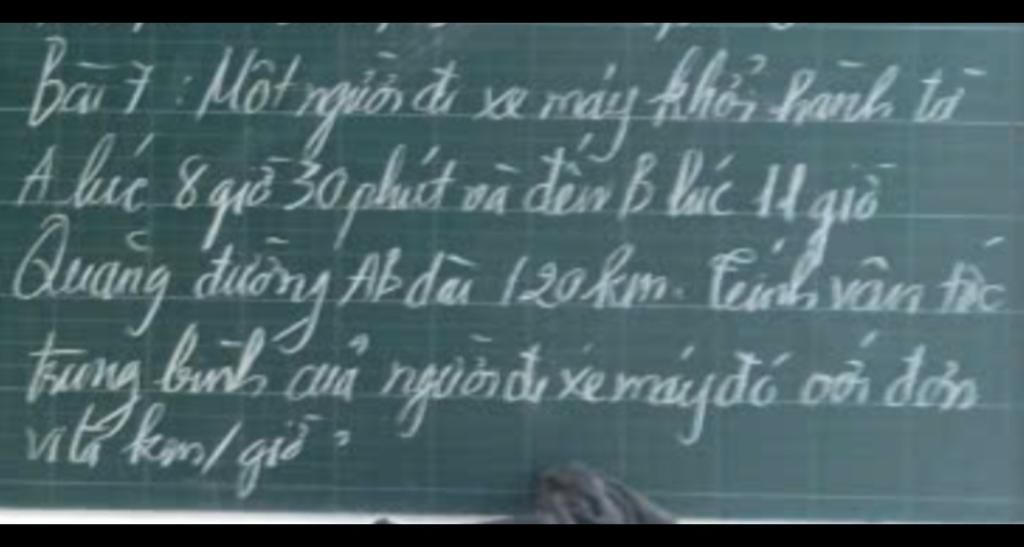 Bài 7 : Một người đi xe máy khởi hành từ
A lúc 8 giờ 30 phút và đến B lúc 11 giờ
Quãng đường AB dài 120 km. Tính vận tốc
trung bình của người đi xe máy đó với đơn
vị là km/giờ ?